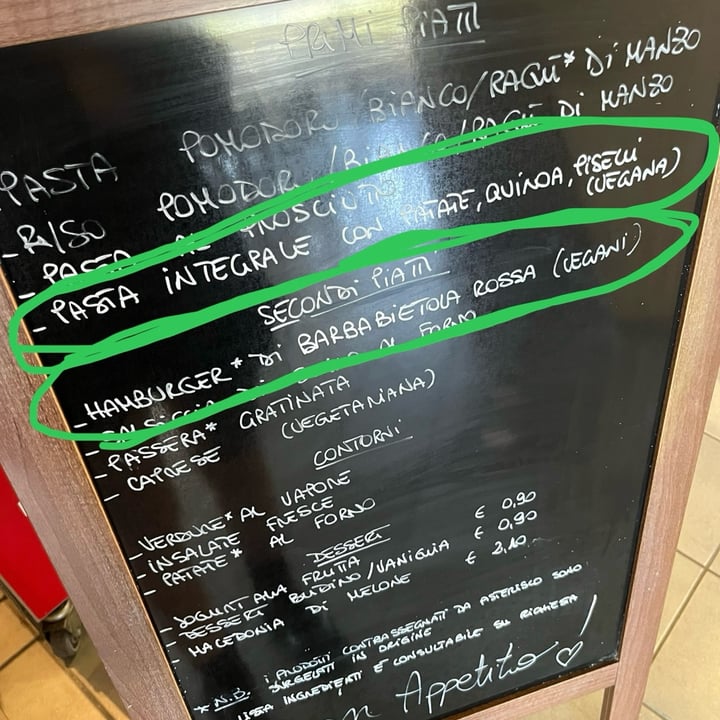 PRIMI PIATTI
- PASTA POMODORO/BIANCO/RAGÙ* DI MANZO
- RISO POMODORO/BIANCO/RAGÙ DI MANZO
- PASTA AL PROSCIUTTO
- PASTA INTEGRALE CON PATATE, QUINOA, PISELLI (VEGANA)
SECONDI PIATTI
- HAMBURGER* DI BARBABIETOLA ROSSA (VEGANI)
- AL FORNO
- PASSERA* GRATINATA
- CAPRESE (VEGETARIANA)
CONTORNI
- VERDURE* AL VAPORE
- INSALATE FRESCE
- PATATE* AL FORNO
DESSERT
- YOGURT ALLA FRUTTA € 0,90
- DESSERT BUDINO/VANIGLIA € 0,90
- MACEDONIA DI MELONE € 2,10
* N.B. I PRODOTTI CONTRASSEGNATI DA ASTERISCO SONO
SURGELATI IN ORIGINE
LISTA INGREDIENTI E CONSULTABILE SU RICHIESTA
Appetito!